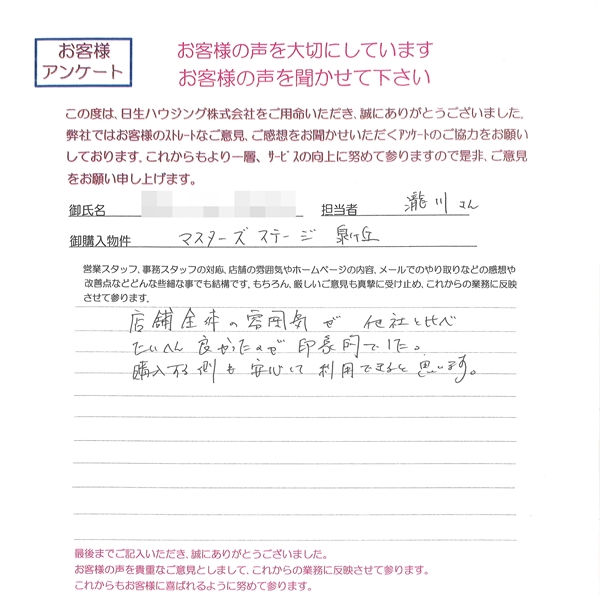 お客様
アンケート
お客様の声を大切にしています
お客様の声を聞かせて下さい
この度は、日生ハウジング株式会社をご用命いただき、誠にありがとうございました。
弊社ではお客様のストレートなご意見、ご感想をお聞かせいただくアンケートのご協力をお願い
しております。これからもより一層、サービスの向上に努めて参りますので是非、ご意見
をお願い申し上げます。
御氏名 担当者 瀧川さん
御購入物件 マスターズステージ 泉ヶ丘
営業スタッフ、事務スタッフの対応、店舗の雰囲気やホームページの内容、メールでのやり取りなどの感想や
改善点などどんな些細な事でも結構です。もちろん、厳しいご意見も真摯に受け止め、これからの業務に反映
させて参ります。
店舗全体の雰囲気が 他社と比べ
たいへん良かったので印象的でした。
購入する側も安心して利用できると思います。
最後までご記入いただき、誠にありがとうございました。
お客様の声を貴重なご意見としまして、これからの業務に反映させて参ります。
これからもお客様に喜ばれるように努めて参ります。